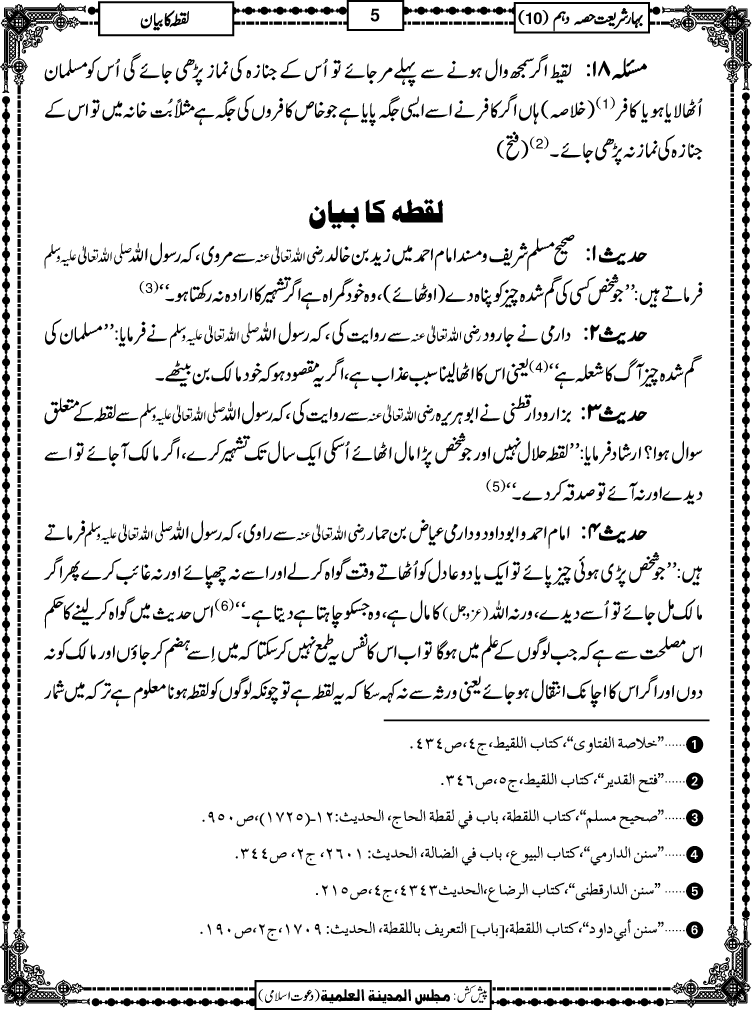 بہارِ شریعت حصہ دہم (10)
5
لقطہ کا بیان
مسئلہ ۱۸: لقیط اگر سمجھ وال ہونے سے پہلے مر جائے تو اُس کے جنازہ کی نماز پڑھی جائے گی اُس کو مسلمان
اُٹھا لایا ہو یا کافر(1) (خلاصہ) ہاں اگر کافر نے اسے ایسی جگہ پایا ہے جو خاص کافروں کی جگہ ہے مثلاً بُت خانہ میں تو اس کے
جنازہ کی نماز نہ پڑھی جائے۔(2) (فتح)
لقطہ کا بیان
حدیث ۱: صحیح مسلم شریف و مسند امام احمد میں زید بن خالد رضی اللہ تعالیٰ عنہ سے مروی، کہ رسول اللہ صلی اللہ تعالیٰ علیہ وسلم
فرماتے ہیں: ’’جو شخص کسی کی گم شدہ چیز کو پناہ دے (اوٹھائے)، وہ خود گمراہ ہے اگر تشہیر کا ارادہ نہ رکھتا ہو۔‘‘(3)
حدیث ۲: دارمی نے جارود رضی اللہ تعالیٰ عنہ سے روایت کی، کہ رسول اللہ صلی اللہ تعالیٰ علیہ وسلم نے فرمایا: ’’مسلمان کی
گم شدہ چیز آگ کا شعلہ ہے‘‘(4) یعنی اس کا اٹھالینا سبب عذاب ہے، اگر یہ مقصود ہو کہ خود مالک بن بیٹھے۔
حدیث ۳: بزار و دارقطنی نے ابوہریرہ رضی اللہ تعالیٰ عنہ سے روایت کی، کہ رسول اللہ صلی اللہ تعالیٰ علیہ وسلم سے لقطہ کے متعلق
سوال ہوا؟ ارشاد فرمایا: ’’لقطہ حلال نہیں اور جو شخص پڑا مال اٹھائے اُسکی ایک سال تک تشہیر کرے، اگر مالک آجائے تو اسے
دیدے اور نہ آئے تو صدقہ کردے۔‘‘(5)
حدیث ۴: امام احمد و ابوداود و دارمی عیاض بن حمار رضی اللہ تعالیٰ عنہ سے راوی، کہ رسول اللہ صلی اللہ تعالیٰ علیہ وسلم فرماتے
ہیں: ’’جو شخص پڑی ہوئی چیز پائے تو ایک یا دو عادل کو اُٹھاتے وقت گواہ کرلے اور اسے نہ چھپائے اور نہ غائب کرے پھر اگر
مالک مل جائے تو اُسے دیدے، ورنہ اللہ (عزوجل) کا مال ہے، وہ جسکو چاہتا ہے دیتا ہے۔‘‘(6) اس حدیث میں گواہ کرلینے کا حکم
اس مصلحت سے ہے کہ جب لوگوں کے علم میں ہوگا تو اب اس کا نفس یہ طمع نہیں کرسکتا کہ میں اِسے ہضم کر جاؤں اور مالک کو نہ
دوں اور اگر اس کا اچانک انتقال ہو جائے یعنی ورثہ سے نہ کہہ سکا کہ یہ لقطہ ہے تو چونکہ لوگوں کو لقطہ ہونا معلوم ہے ترکہ میں شمار
1 ......”خلاصة الفتاوى“، كتاب اللقيط، ج٤، ص٤٣٤.
2 ......”فتح القدير“، كتاب اللقيط، ج٥، ص٣٤٦.
3 ......”صحيح مسلم“، كتاب اللقطة، باب في لقطة الحاج، الحديث: ١٢-(١٧٢٥)، ص٩٥٠.
4 ......”سنن الدارمي“، كتاب البيوع، باب في الضالة، الحديث: ٢٦٠١، ج٢، ص٣٤٤.
5 ...... ”سنن الدارقطنى“، كتاب الرضاع، الحديث ٤٣٤٣، ج٤، ص٢١٥.
6 ......”سنن أبي داود“، كتاب اللقطة، [باب] التعريف باللقطة، الحديث: ١٧٠٩، ج٢، ص١٩٠.
پیش کش: مجلس المدينة العلمية (دعوت اسلامی)